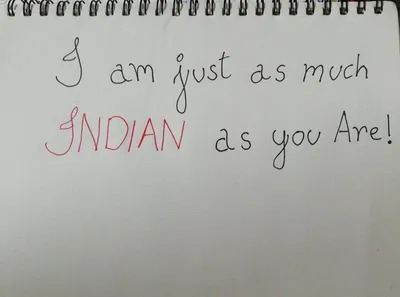 I am just as much
INDIAN as you Are!